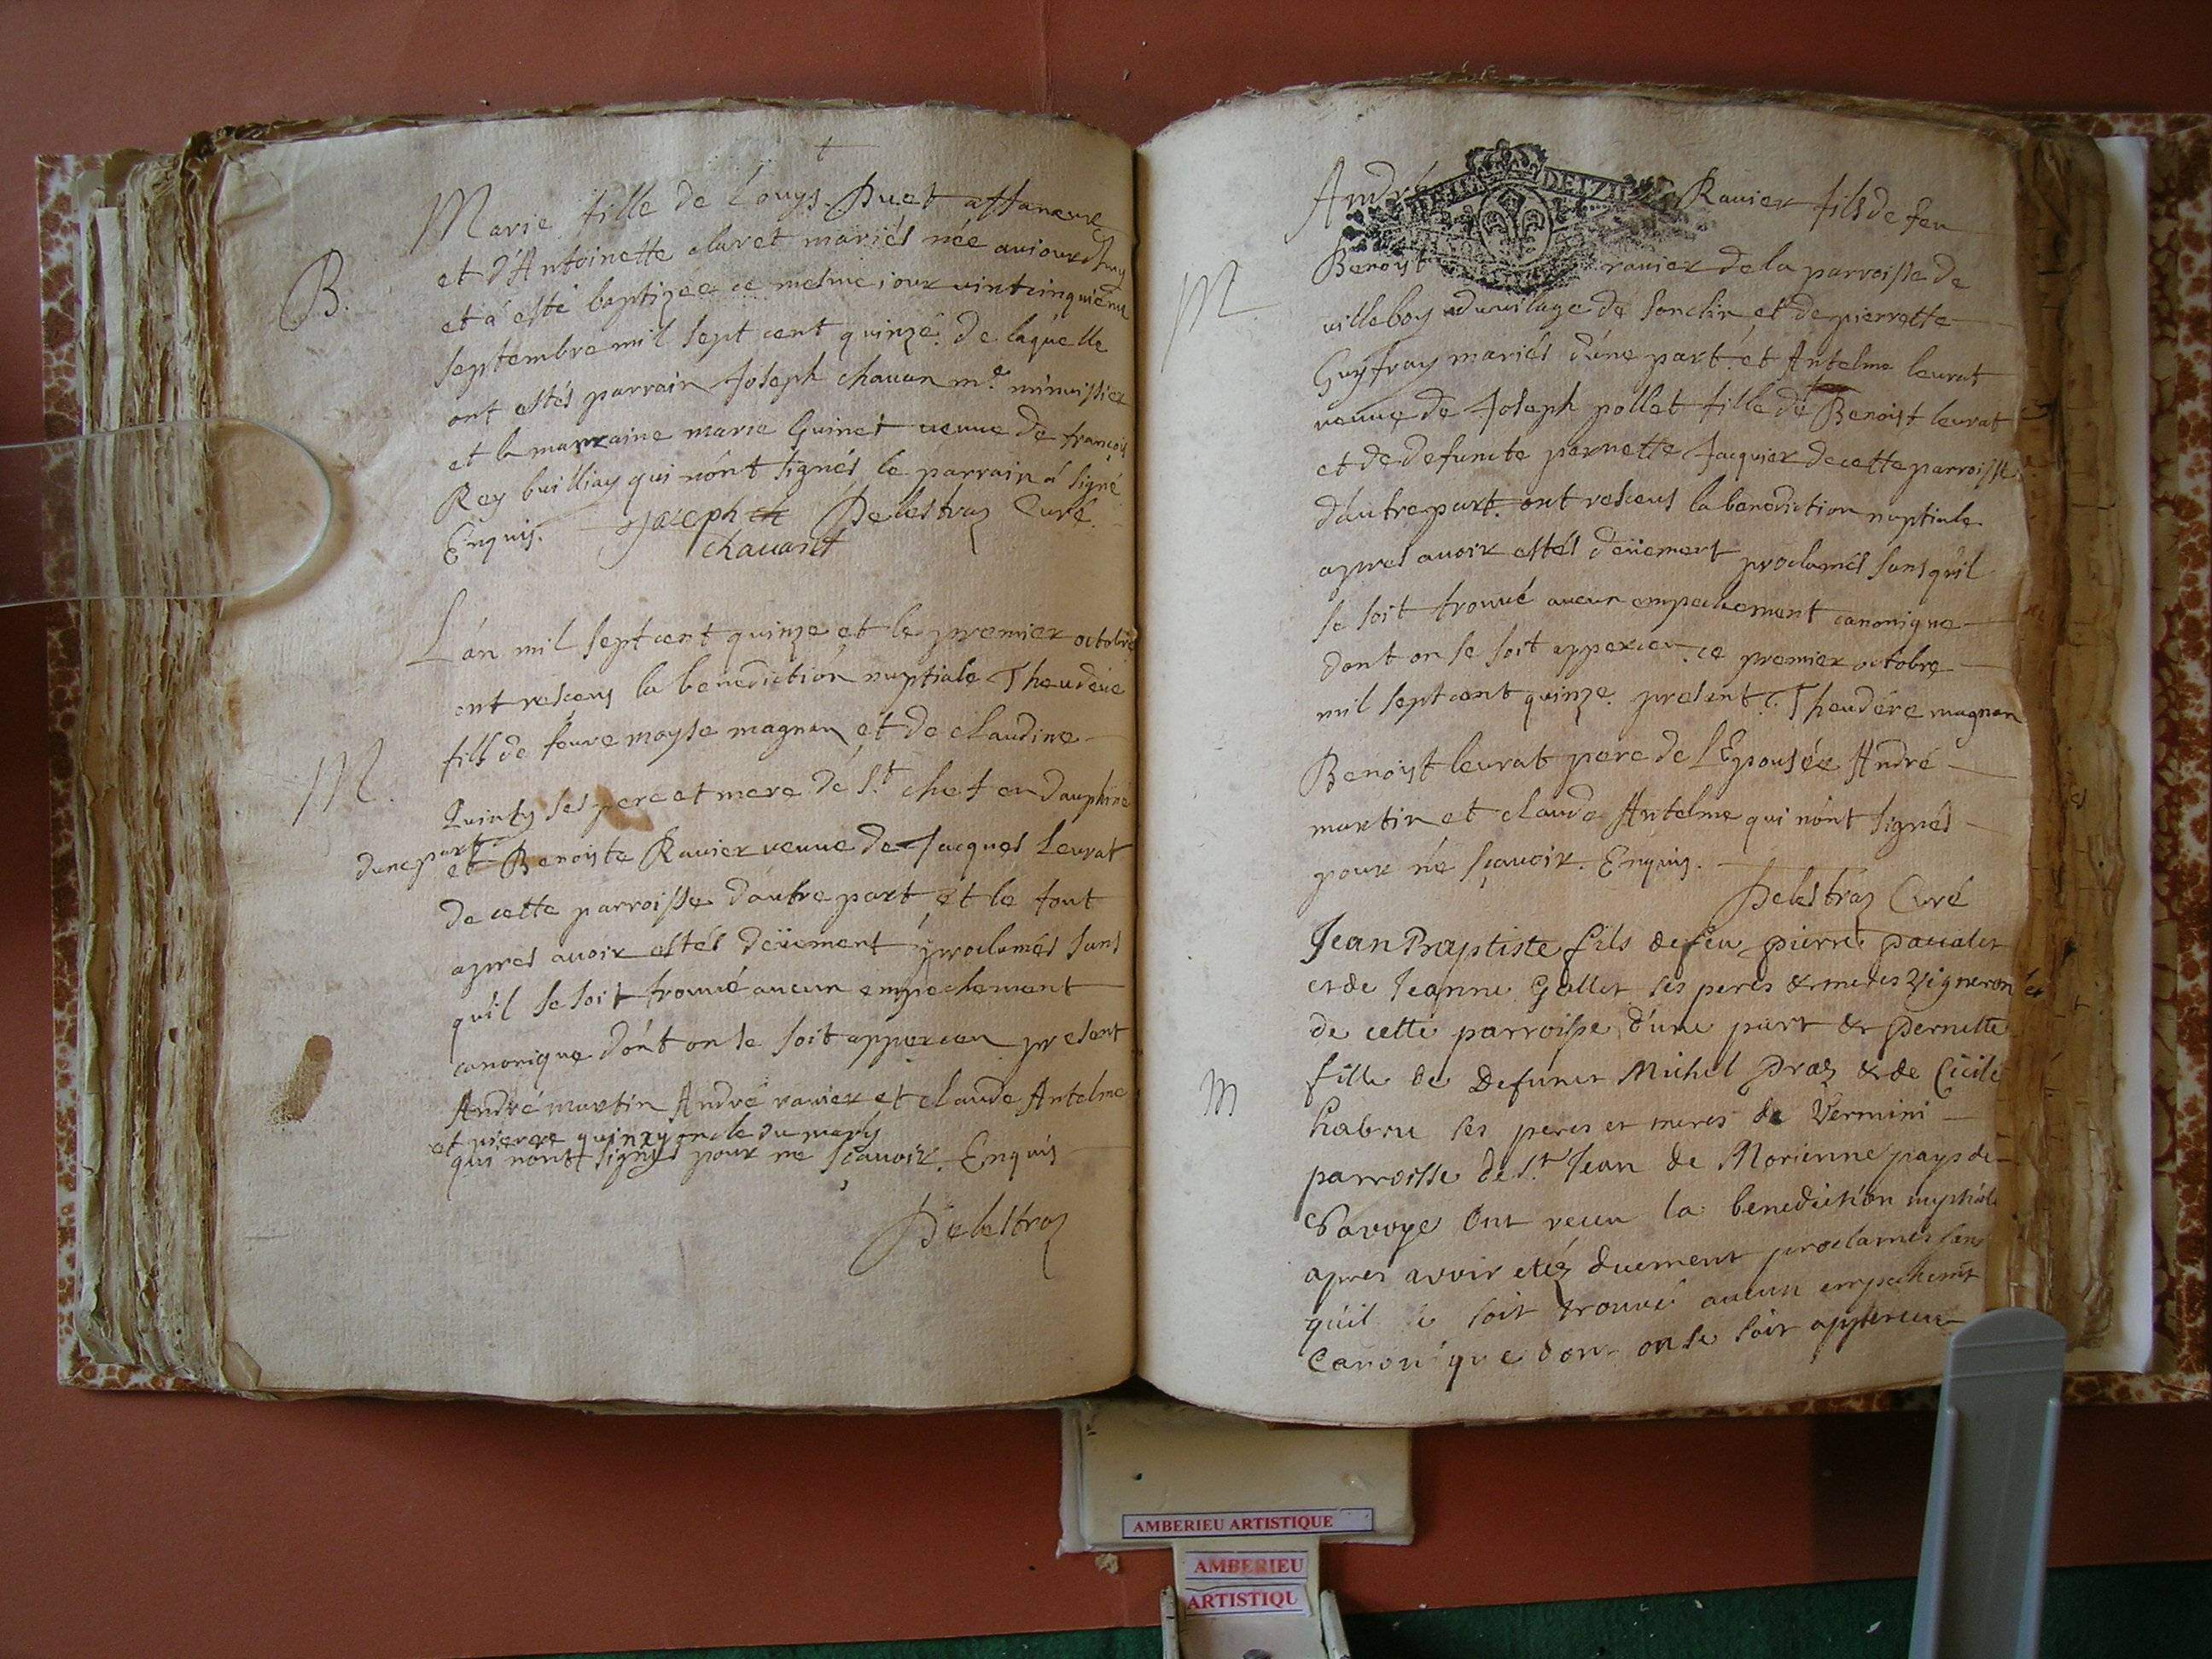 B.
Marie fille de Louys Puet affaneur
et d'Antoinette claret mariés née aujourdhuy
et a esté baptizée ce mesme jour vintcinquieme
septembre mil sept cent quinze. De laquelle
ont estés parrain Joseph chavan me. menuissier
et la marraine marie Guinet veuve de francois
Rey builliay qui nônt signés le parrain a signé
Enquis. Jozeph ch Delestraz Curé.
chavant
M.
L'an mil sept cent quinze et le premier octobre
ont resceus la benediction nuptiale Theudere
fills de feuve moyse magnan et de claudine
Quinty ses pere et mere de St. chef en dauphiné
dune part et Benoiste Ravier veuve de Jacques Levrat
de cette parroisse d'autre part et le tout
apres avoir estés deüement proclamés sans
qu'il se soit trouvé aucun empechement
canonique dónt on se soit apperceu present
André martin André ravier et claude Antelme
et pierre quinzy oncle du marys
qui nont signés pour ne sçavoir. Enquis
Delestraz
M.
André Ravier fils de feu
Benoist ravier de la parroisse de
villeboy du vilage de Sonclin et de pierrette
Guyfray mariés d'une part. et Antelme levrat
veuve de Joseph pollet fille de Benoist levrat
et de defuncte pernette Jacquier de cette parroisse
d'autre part. ont resceus la benediction nuptiale
apres avoir estés deüement proclamés sans qu'il
se soit trouvé aucun empechement canonique
dont on se soit apperceu. ce premier octobre
mil sept cent quinze. present. Theudére magnan
Benoist levrat pere de l'Epousée André
martin et claude Antelme qui nônt signés
pour ne sçavoir. Enquis.
Delestraz Curé
M
Jean Baptiste fils de feu pierre pacalet
et de Jeanne Gallet ses peres & meres Vigneron
de cette parroisse d'une part & Pernette
fille de Defunct Michel Praz & de Cécile
Chabru ses peres et meres de Vermini
parroisse de St. Jean de Morienne pays de
Savoye Ont receu la benediction nuptiale
apres avoir etéz duement proclamés sans
qu'il se soit trouvé aucun empechement
Canonique dont on se soit apperceu
AMBERIEU ARTISTIQUE
AMBERIEU
ARTISTIQU